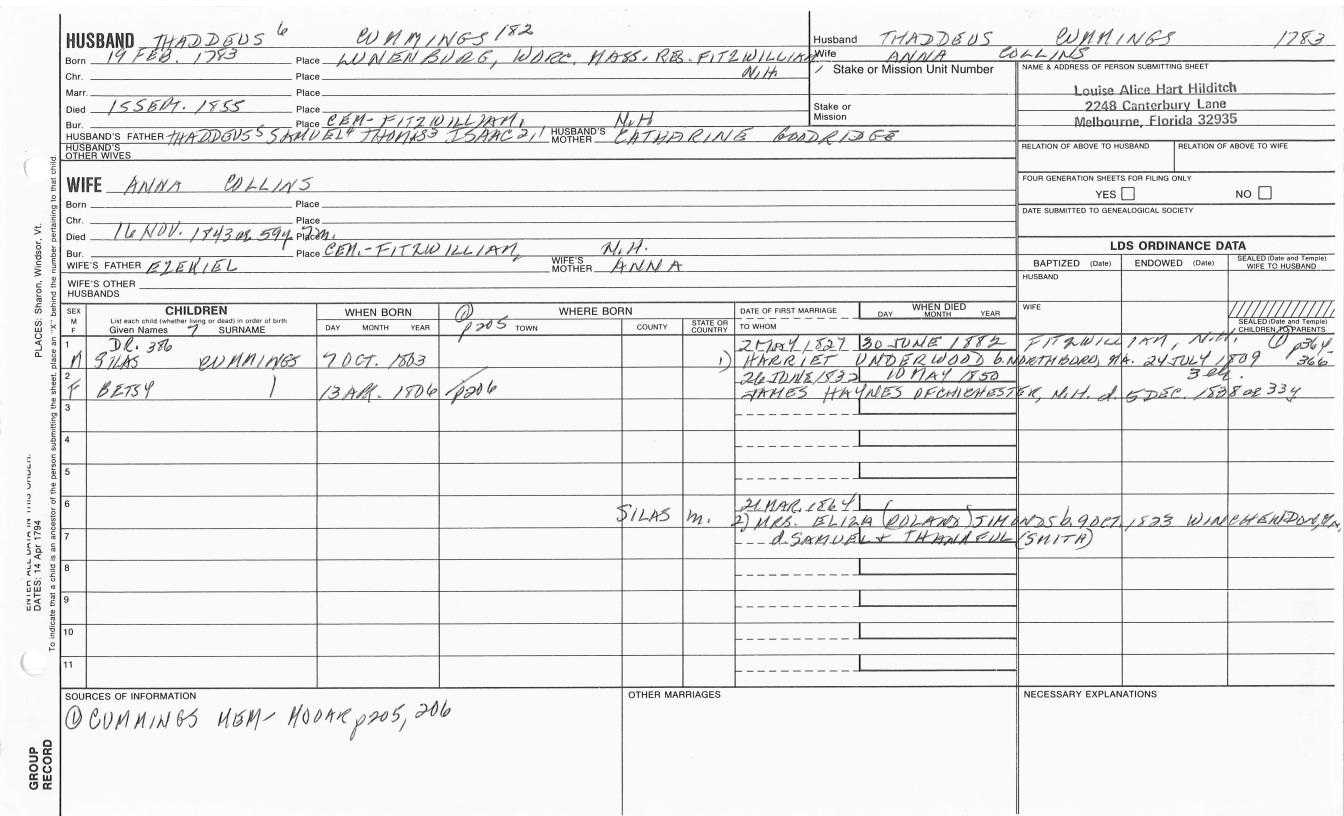 HUSBAND THADDEUS 6 CUMMINGS 182
Husband THADDEUS CUMMINGS 1783
Born 19 FEB. 1783 Place LUNENBURG, WORC. MASS. RES. FITZWILLIAM N.H.
Wife ANNA COLLINS
Chr. Place
Stake or Mission Unit Number
NAME & ADDRESS OF PERSON SUBMITTING SHEET
Louise Alice Hart Hilditch
2248 Canterbury Lane
Melbourne, Florida 32935
Marr. Place
Died 15 SEPT. 1855 Place
Stake or Mission
Bur. Place CEM- FITZWILLIAM, N.H
HUSBAND'S FATHER THADDEUS5 SAMUEL4 THOMAS3 ISAAC 2,1 HUSBAND'S MOTHER CATHARINE GOODRIDGE
HUSBAND'S OTHER WIVES
RELATION OF ABOVE TO HUSBAND RELATION OF ABOVE TO WIFE
WIFE ANNA COLLINS
FOUR GENERATION SHEETS FOR FILING ONLY
YES NO
Born Place
Chr. Place
DATE SUBMITTED TO GENEALOGICAL SOCIETY
Died 16 NOV. 1843 ae 59y 7m. Place
Bur. Place CEM.-FITZWILLIAM, N.H.
LDS ORDINANCE DATA
WIFE'S FATHER EZEKIEL WIFE'S MOTHER ANNA
BAPTIZED (Date) ENDOWED (Date) SEALED (Date and Temple) WIFE TO HUSBAND
WIFE'S OTHER HUSBANDS
HUSBAND
WIFE
SEALED (Date and Temple) CHILDREN TO PARENTS
SEX M F
CHILDREN
List each child (whether living or dead) in order of birth
Given Names 7 SURNAME
WHEN BORN
DAY MONTH YEAR
① p205
WHERE BORN
TOWN COUNTY STATE OR COUNTRY
DATE OF FIRST MARRIAGE
TO WHOM
WHEN DIED
DAY MONTH YEAR
1 DR. 386 2 MAY 1827 30 JUNE 1882 FITZWILLIAM, N.H. ① p364-366
M SILAS CUMMINGS 7 OCT. 1803 1) HARRIET UNDERWOOD b. NORTHBORO, MA. 24 JULY 1809
2 26 JUNE 1832 10 MAY 1850 3 ch.
F BETSY 13 APR. 1806 p206 JAMES HAYNES OF CHICHESTER, N.H. d. 5 DEC. 1838 ae 33y
3
4
5
6 SILAS m. 21 MAR. 1864
2) MRS. ELIZA (ROLAND) SIMONDS b. 9 OCT. 1823 WINCHENDON, Ma,
7 d. SAMUEL + THANKFUL (SMITH)
8
9
10
11
SOURCES OF INFORMATION
① CUMMINGS MEM- MOOAR p205, 206
OTHER MARRIAGES
NECESSARY EXPLANATIONS
GROUP RECORD
DATES: 14 Apr 1794
PLACES: Sharon, Windsor, Vt.
To indicate that a child is an ancestor of the person submitting the sheet, place an "X" behind the number pertaining to that child.